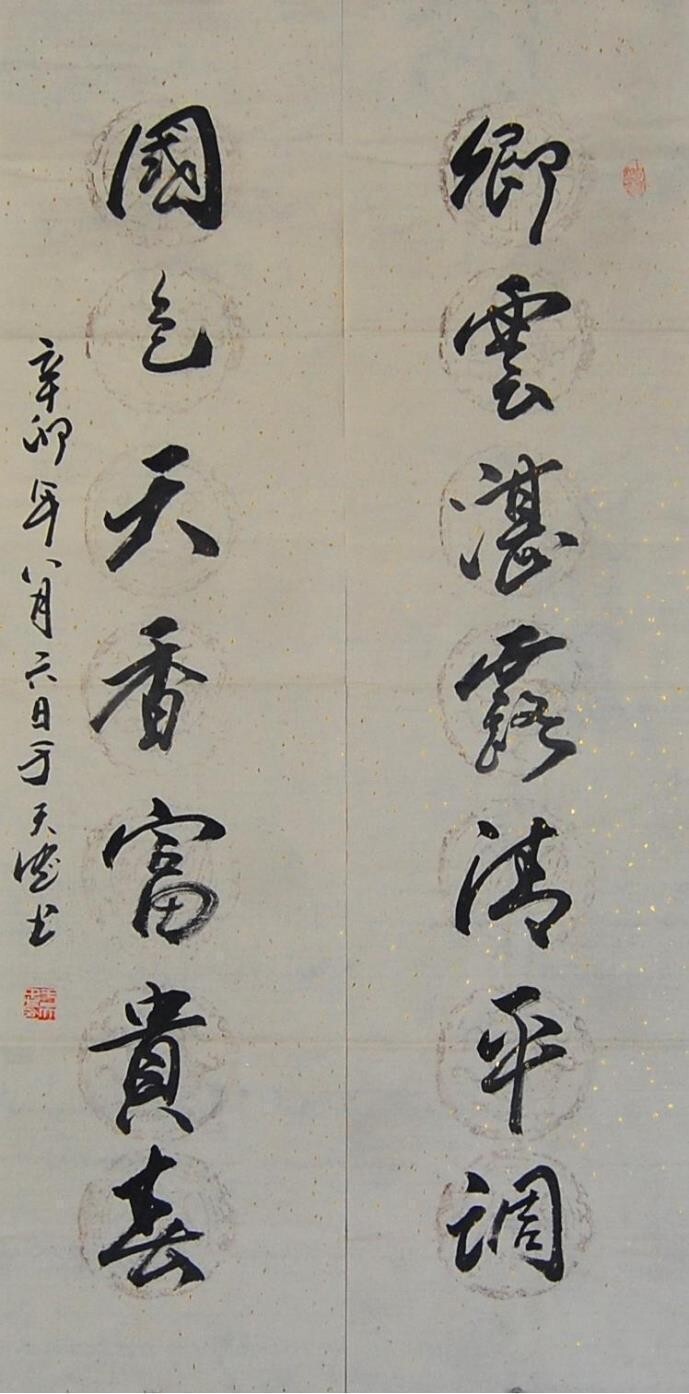 卿雲湛露清平調
國色天香富貴春
辛卯年八月六日于天